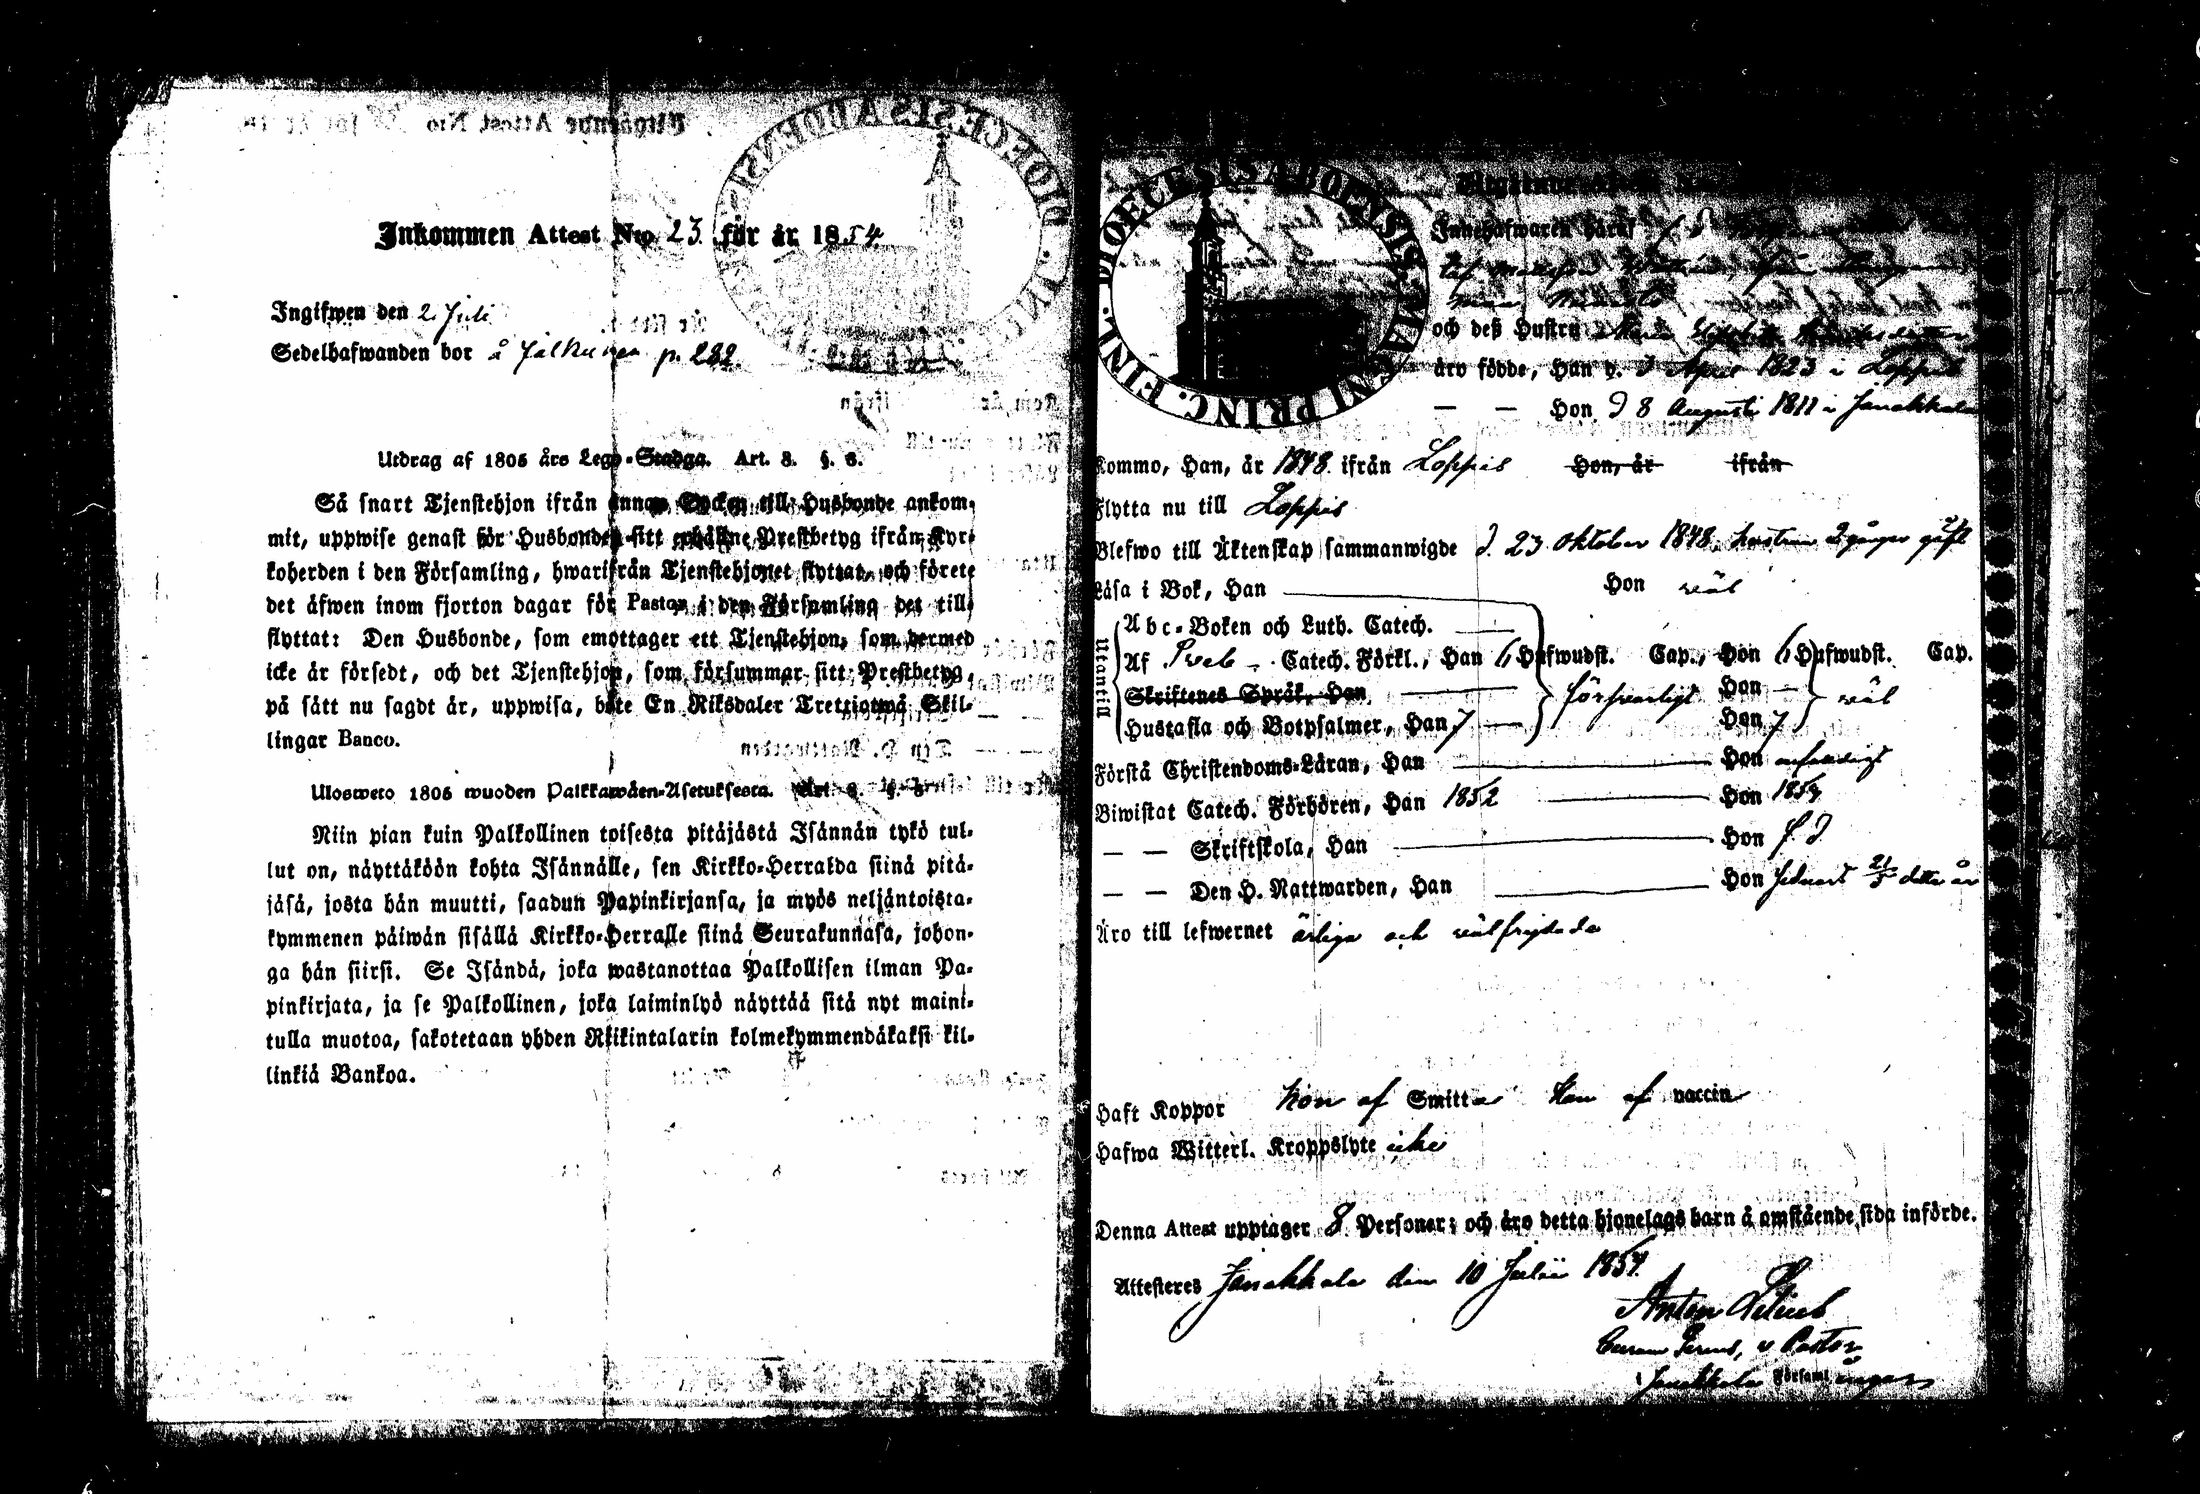 Inkommen Attest Nro 23 för år 1854.
Ingifwen den 2 Juli
Sedelhafwanden bor å p. 282.
Utdrag af 1805 års Lego-Stadga. Art. 3. §. 6.
Så snart Tjenstehjon ifrån annan Socken till Husbonde ankom-
mit, uppwise genast för Husbonden sitt erhållne Prestbetyg ifrån Kyr-
koherden i den Församling, hwarifrån Tjenstehjonet flyttat, och förete
det äfwen inom fjorton dagar för Pastor i den Församling det till-
flyttat: Den Husbonde, som emottager ett Tjenstehjon, som dermed
icke är försedt, och det Tjenstehjon, som försummar sitt Prestbetyg,
på sätt nu sagdt är, uppwisa, böte En Riksdaler Trettiotwå Skil-
lingar Banco.
Ulosweto 1805 wuoden Palkkawäen-Asetuksesta. Art. 3. §. 6
Niin pian kuin Palkollinen toisesta pitäjästä Isännän tykö tul-
lut on, näyttäköön kohta Isännälle, sen Kirkko-Herralda siinä pitä-
jäsä, josta hän muutti, saadun Papinkirjansa, ja myös neljäntoista-
kymmenen päiwän sisällä Kirkko-Herralle siinä Seurakunnasa, johon-
ga hän siirsi. Se Isändä, joka wastanottaa Palkollisen ilman Pa-
pinkirjata, ja se Palkollinen, joka laiminlyö näyttää sitä nyt maini-
tulla muotoa, sakotetaan yhden Riikintalarin kolmekymmendäkaksi kil-
linkiä Bankoa.
DIOECESIS ABOENSIS. MAGNI PRINC. FINL.
Innehafwaren häraf
och deß Hustru Maria Elisabeth
äro födde, Han d. 3 April 1823 i Loppis
— — Hon d 8 Augusti 1811 i Janakkala
Kommo, Han, år 1848 ifrån Loppis Hon, år ifrån
Flytta nu till Loppis
Blefwo till Äktenskap sammanwigde d. 23 Oktober 1848, hustrun 2 gånger gift
Läsa i Bok, Han Hon väl
Utantill
Abc-Boken och Luth. Catech.
Af Sveb. Catech. Förkl., Han 6 Hufwudst. Cap., Hon 6 Hufwudst. Cap.
Skriftenes Språk, Han försvarligt Hon väl
Hustafla och Botpsalmer, Han 7 Hon 7
Förstå Christendoms-Läran, Han Hon
Biwistat Catech. Förhören, Han 1852 Hon 1854
— — Skriftskola, Han Hon
— — Den H. Nattwarden, Han Hon sednast 21/5 detta år
Äro till lefwernet ärliga och välfrejdade
Haft Koppor Hon af Smitta Han af vaccin
Hafwa Witterl. Kroppslyte icke
Denna Attest upptager 8 Personer; och äro detta hjonelags barn å omstående sida införde.
Attesteres Janakkala den 10 Julii 1854.
Anton
v Pastor
i Janakkala Församl